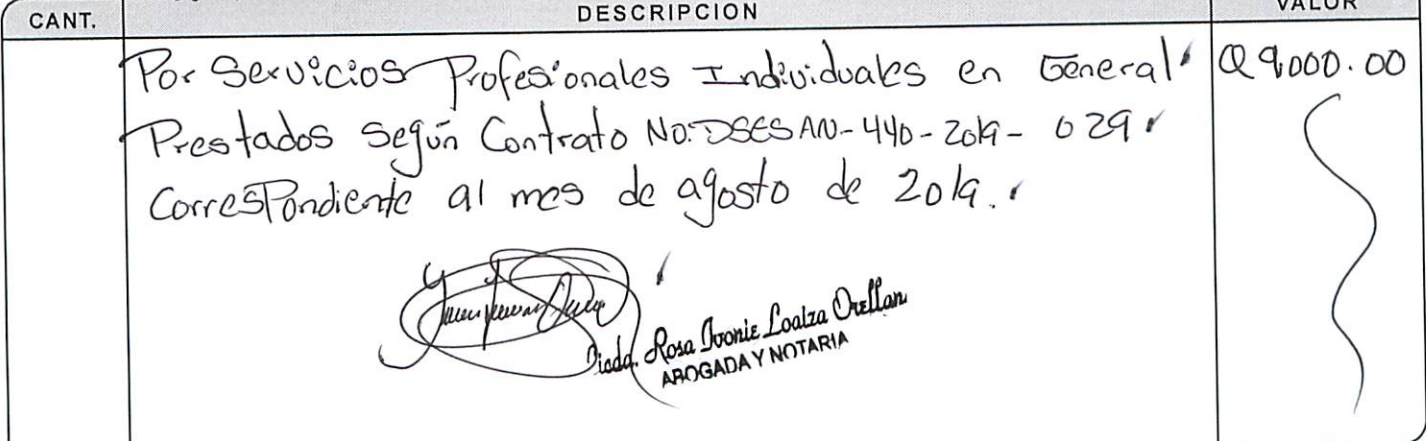 CANT. DESCRIPCION VALOR
Por Servicios Profesionales Individuales en General Q 9,000.00
Prestados Según Contrato No. DSESAN-440-2019-029
Correspondiente al mes de agosto de 2019.
Licda. Rosa Ivonie Loaiza Orellan
ABOGADA Y NOTARIA